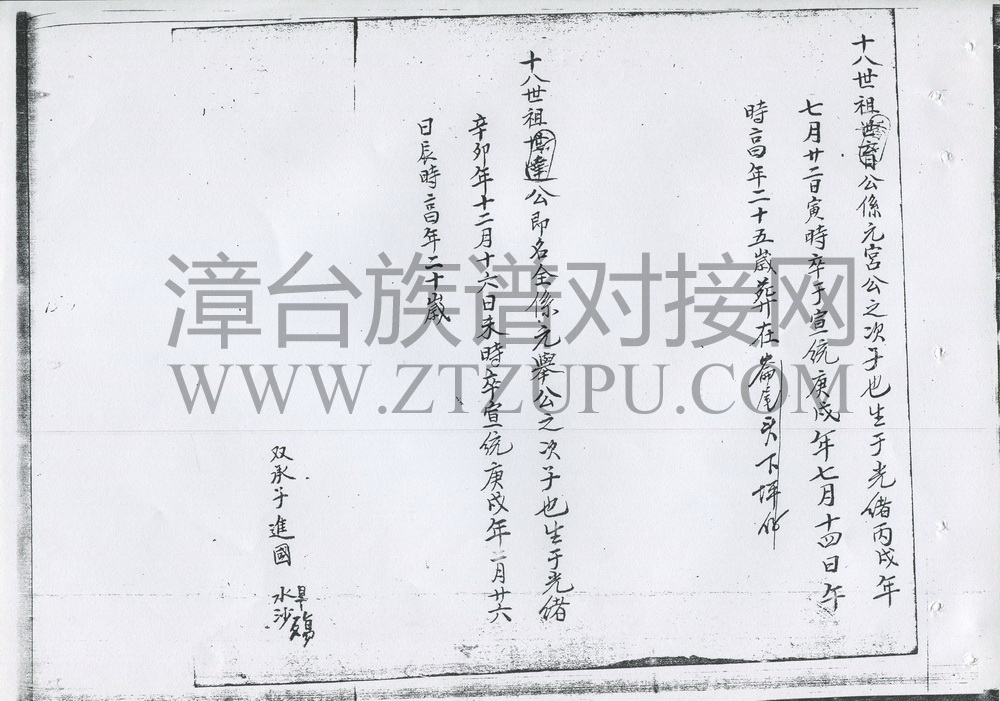 十八世祖世育公係元宮公之次子也生于光緒丙戌年
七月廿二日寅時卒于宣統庚戌年七月十四日午
時高年二十五歲葬在崙尾头下坪
十八世祖達公即名全係元舉公之次子也生于光緒
辛卯年十二月十六日未時卒宣統庚戌年二月廿六
日辰時高年二十歲
双承子進國
水沙
早殤
漳台族谱对接网
WWW.ZTZUPU.COM